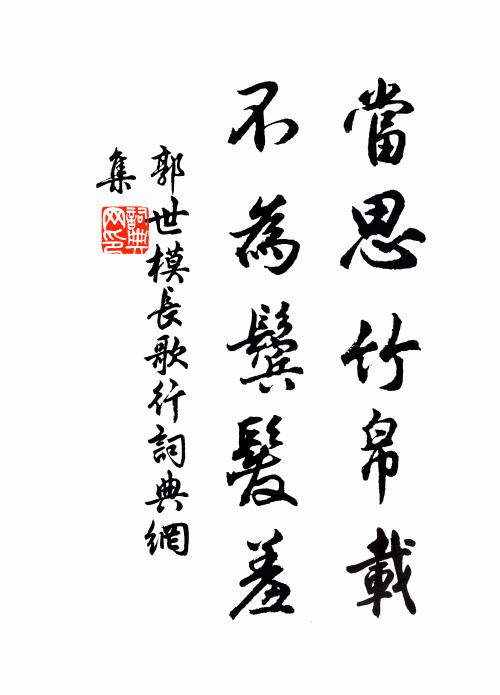 當思竹帛載
不為鬢髮羞
郭世模長歌行詞典網
集
詞典網印